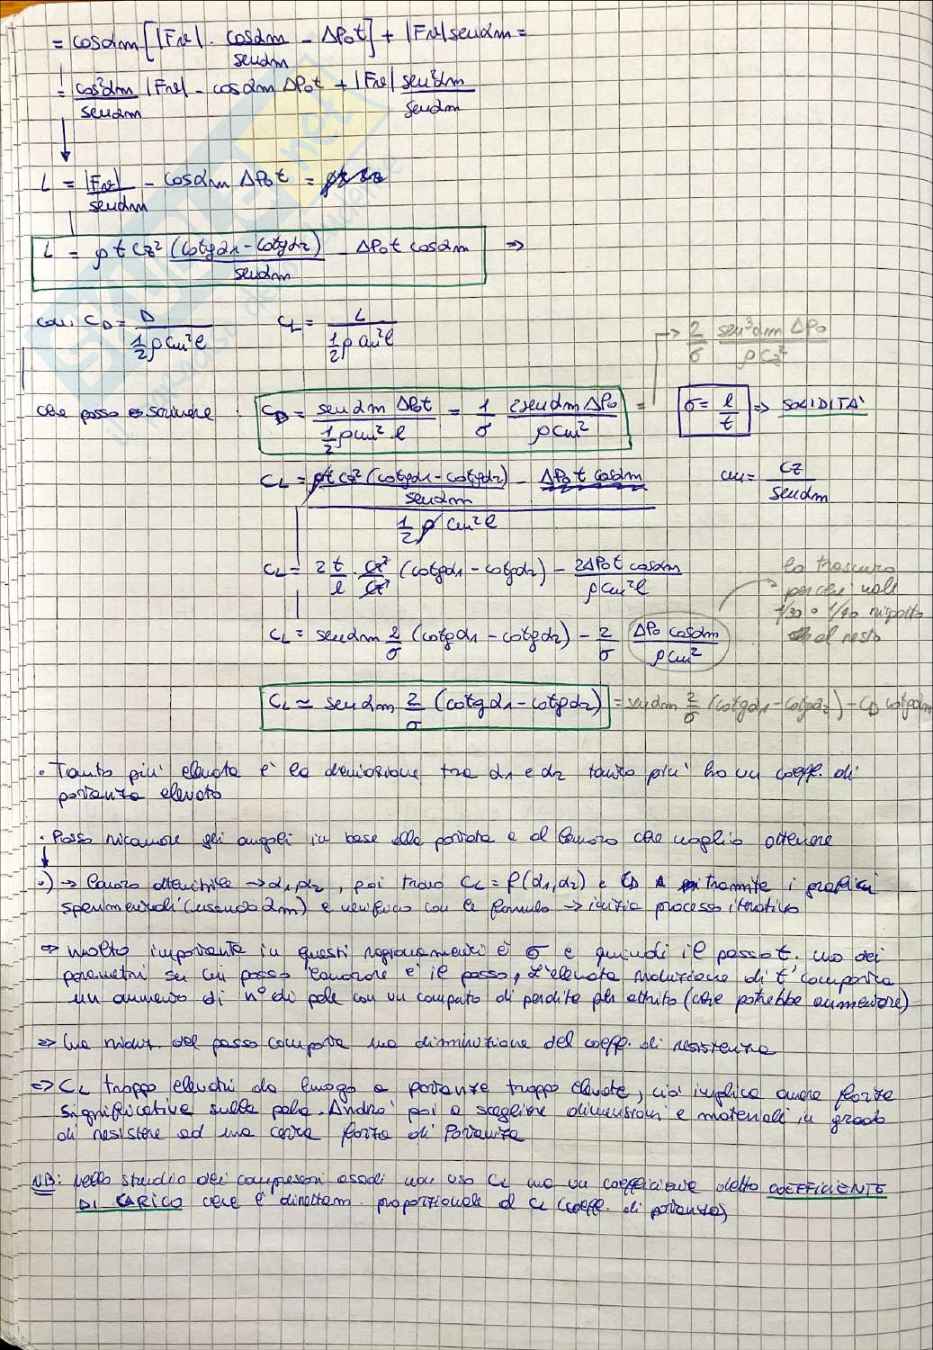 = cosαm [ |Fu| · cosαm/senαm - ΔP₀t ] + |Fu| senαm =
= cos²αm/senαm |Fu| - cosαm ΔP₀t + |Fu| sen²αm/senαm
L = |Fu|/senαm - cosαm ΔP₀t =
L = ρ t cz² (cotgα1 - cotgα2)/senαm - ΔP₀t cosαm ⇒
con: CD = D / (1/2 ρ cm² l)    CL = L / (1/2 ρ cm² l)    → 2/σ sen³αm ΔP₀ / ρ cz²
che posso riscrivere : CD = senαm ΔP₀t / (1/2 ρ cm² · l) = 1/σ 2senαm ΔP₀ / ρ cm² =    σ = l/t ⇒ SOLIDITA'
CL = (ρt cz² (cotgα1 - cotgα2)/senαm - ΔP₀t cosαm) / (1/2 ρ cm² l)    cm = cz/senαm
CL = 2 t/l · cz²/cz² (cotgα1 - cotgα2) - 2ΔP₀t cosαm / ρ cm² l
lo trascuro
perché vale
1/30 o 1/40 rispetto
al resto
CL = senαm 2/σ (cotgα1 - cotgα2) - 2/σ ΔP₀ cosαm / ρ cm²
CL ≃ senαm 2/σ (cotgα1 - cotgα2) = senαm 2/σ (cotgα1 - cotgα2) - CD cotgαm
· Tanto piu' elevata e' la deviazione tra α1 e α2 tanto piu' ho un coeff. di
portanza elevato
· Posso ricavare gli angoli in base alla portata e al lavoro che voglio ottenere
·) → lavoro ottenibile → α1, α2, poi trovo CL = f(α1, α2) e CD tramite i grafici
sperimentali (usando αm) e verifico con la formula → inizia processo iterativo
⇒ molto importante in questi ragionamenti è σ e quindi il passo t. uno dei
parametri su cui posso lavorare e' il passo, l'elevata riduzione di t comporta
un aumento di n° di pale con un comparto di perdite per attrito (che potrebbe aumentare)
⇒ una riduz. del passo comporta una diminuzione del coeff. di resistenza
⇒ CL troppo elevati da luogo a portanze troppo elevate, cio' implica avere forze
significative sulla pala. Andro' poi a scegliere dimensioni e materiali in grado
di resistere ad una certa forza di Portanza
NB: nello studio dei compressori assiali non uso CL ma un coefficiente detto COEFFICIENTE
DI CARICO che è direttam. proporzionale al CL (coeff. di portanza)